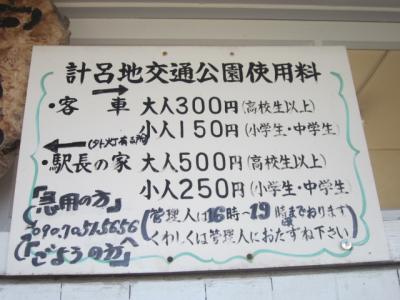 計呂地交通公園使用料
・客車 大人300円(高校生以上)
小人150円(小学生・中学生)
(外灯有る所)
・駅長の家 大人500円(高校生以上)
小人250円(小学生・中学生)
「急用の方」
(管理人は16時〜19時までおります
くわしくは管理人におたずね下さい)
「ごようの方へ